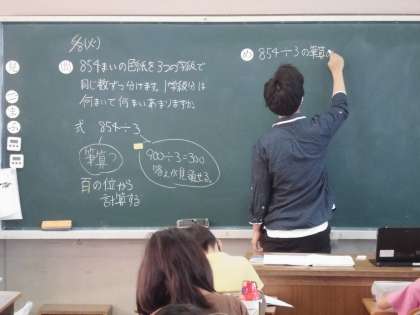 6/8(火)
問 854まいの色紙を3つの学級で
同じ数ずつ分けます。1学級分は
何まいで何まいあまりますか。
式 854÷3
筆算
900÷3=300
答えが見通せる
百の位から
計算する
め 854÷3の筆算